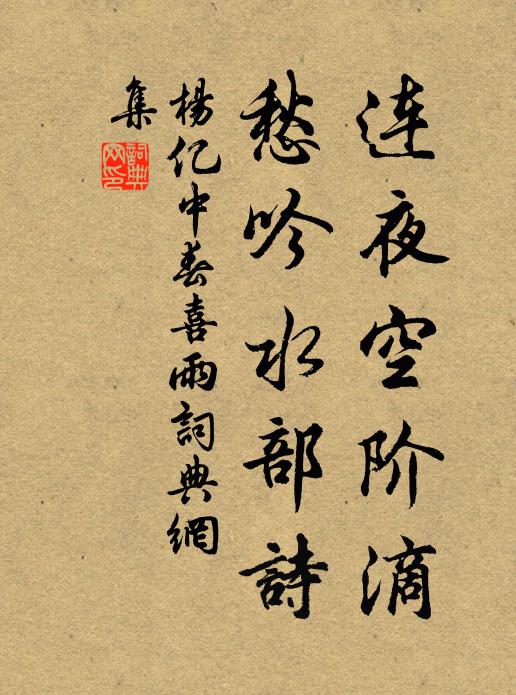 连夜空阶滴
愁吟水部詩
楊亿中春喜雨詞典網
集
詞典網印